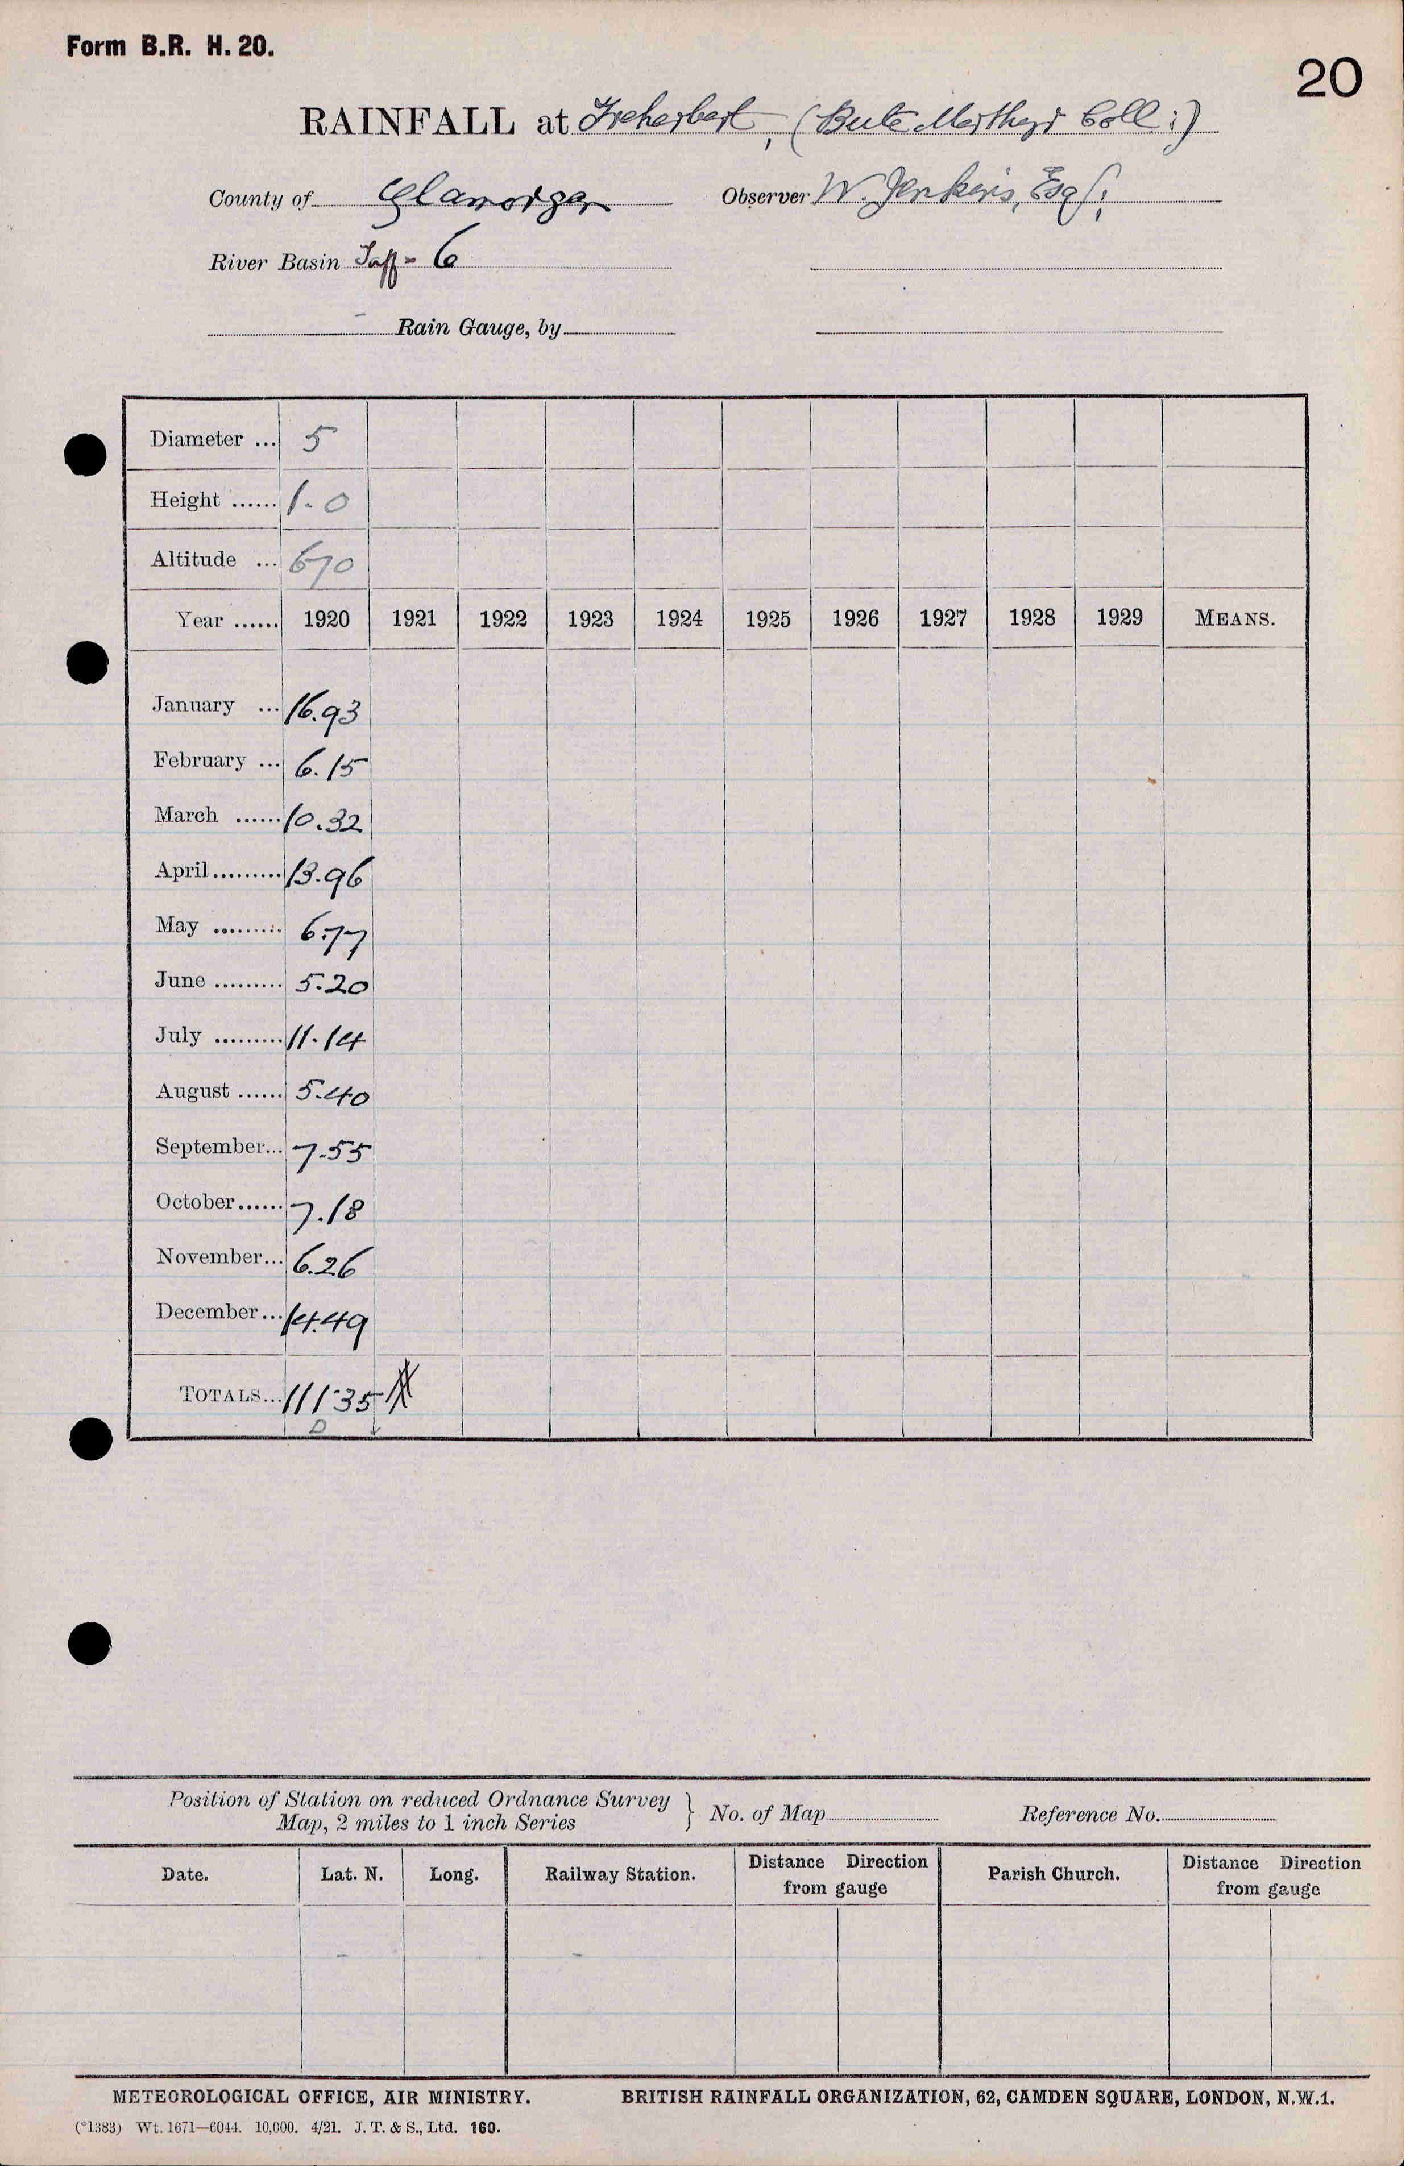 Form B.R. H. 20.
20
RAINFALL at Treherbert, (Bute Merthyr Coll:)
County of Glamorgan Observer W. Jenkins, Esq:
River Basin Taff - 6
Rain Gauge, by
Diameter ... 5
Height ...... 1.0
Altitude ... 670
Year ...... 1920 1921 1922 1923 1924 1925 1926 1927 1928 1929 MEANS.
January ... 16.93
February ... 6.15
March ...... 10.32
April......... 13.96
May ......... 6.77
June ......... 5.20
July ......... 11.14
August ...... 5.40
September... 7.55
October...... 7.18
November... 6.26
December... 14.49
TOTALS... 111.35
D
Position of Station on reduced Ordnance Survey
Map, 2 miles to 1 inch Series } No. of Map Reference No.
Date. Lat. N. Long. Railway Station. Distance Direction from gauge Parish Church. Distance Direction from gauge
METEOROLOGICAL OFFICE, AIR MINISTRY. BRITISH RAINFALL ORGANIZATION, 62, CAMDEN SQUARE, LONDON, N.W.1.
(*1383) Wt. 1671—6044. 10,000. 4/21. J. T. & S., Ltd. 160.